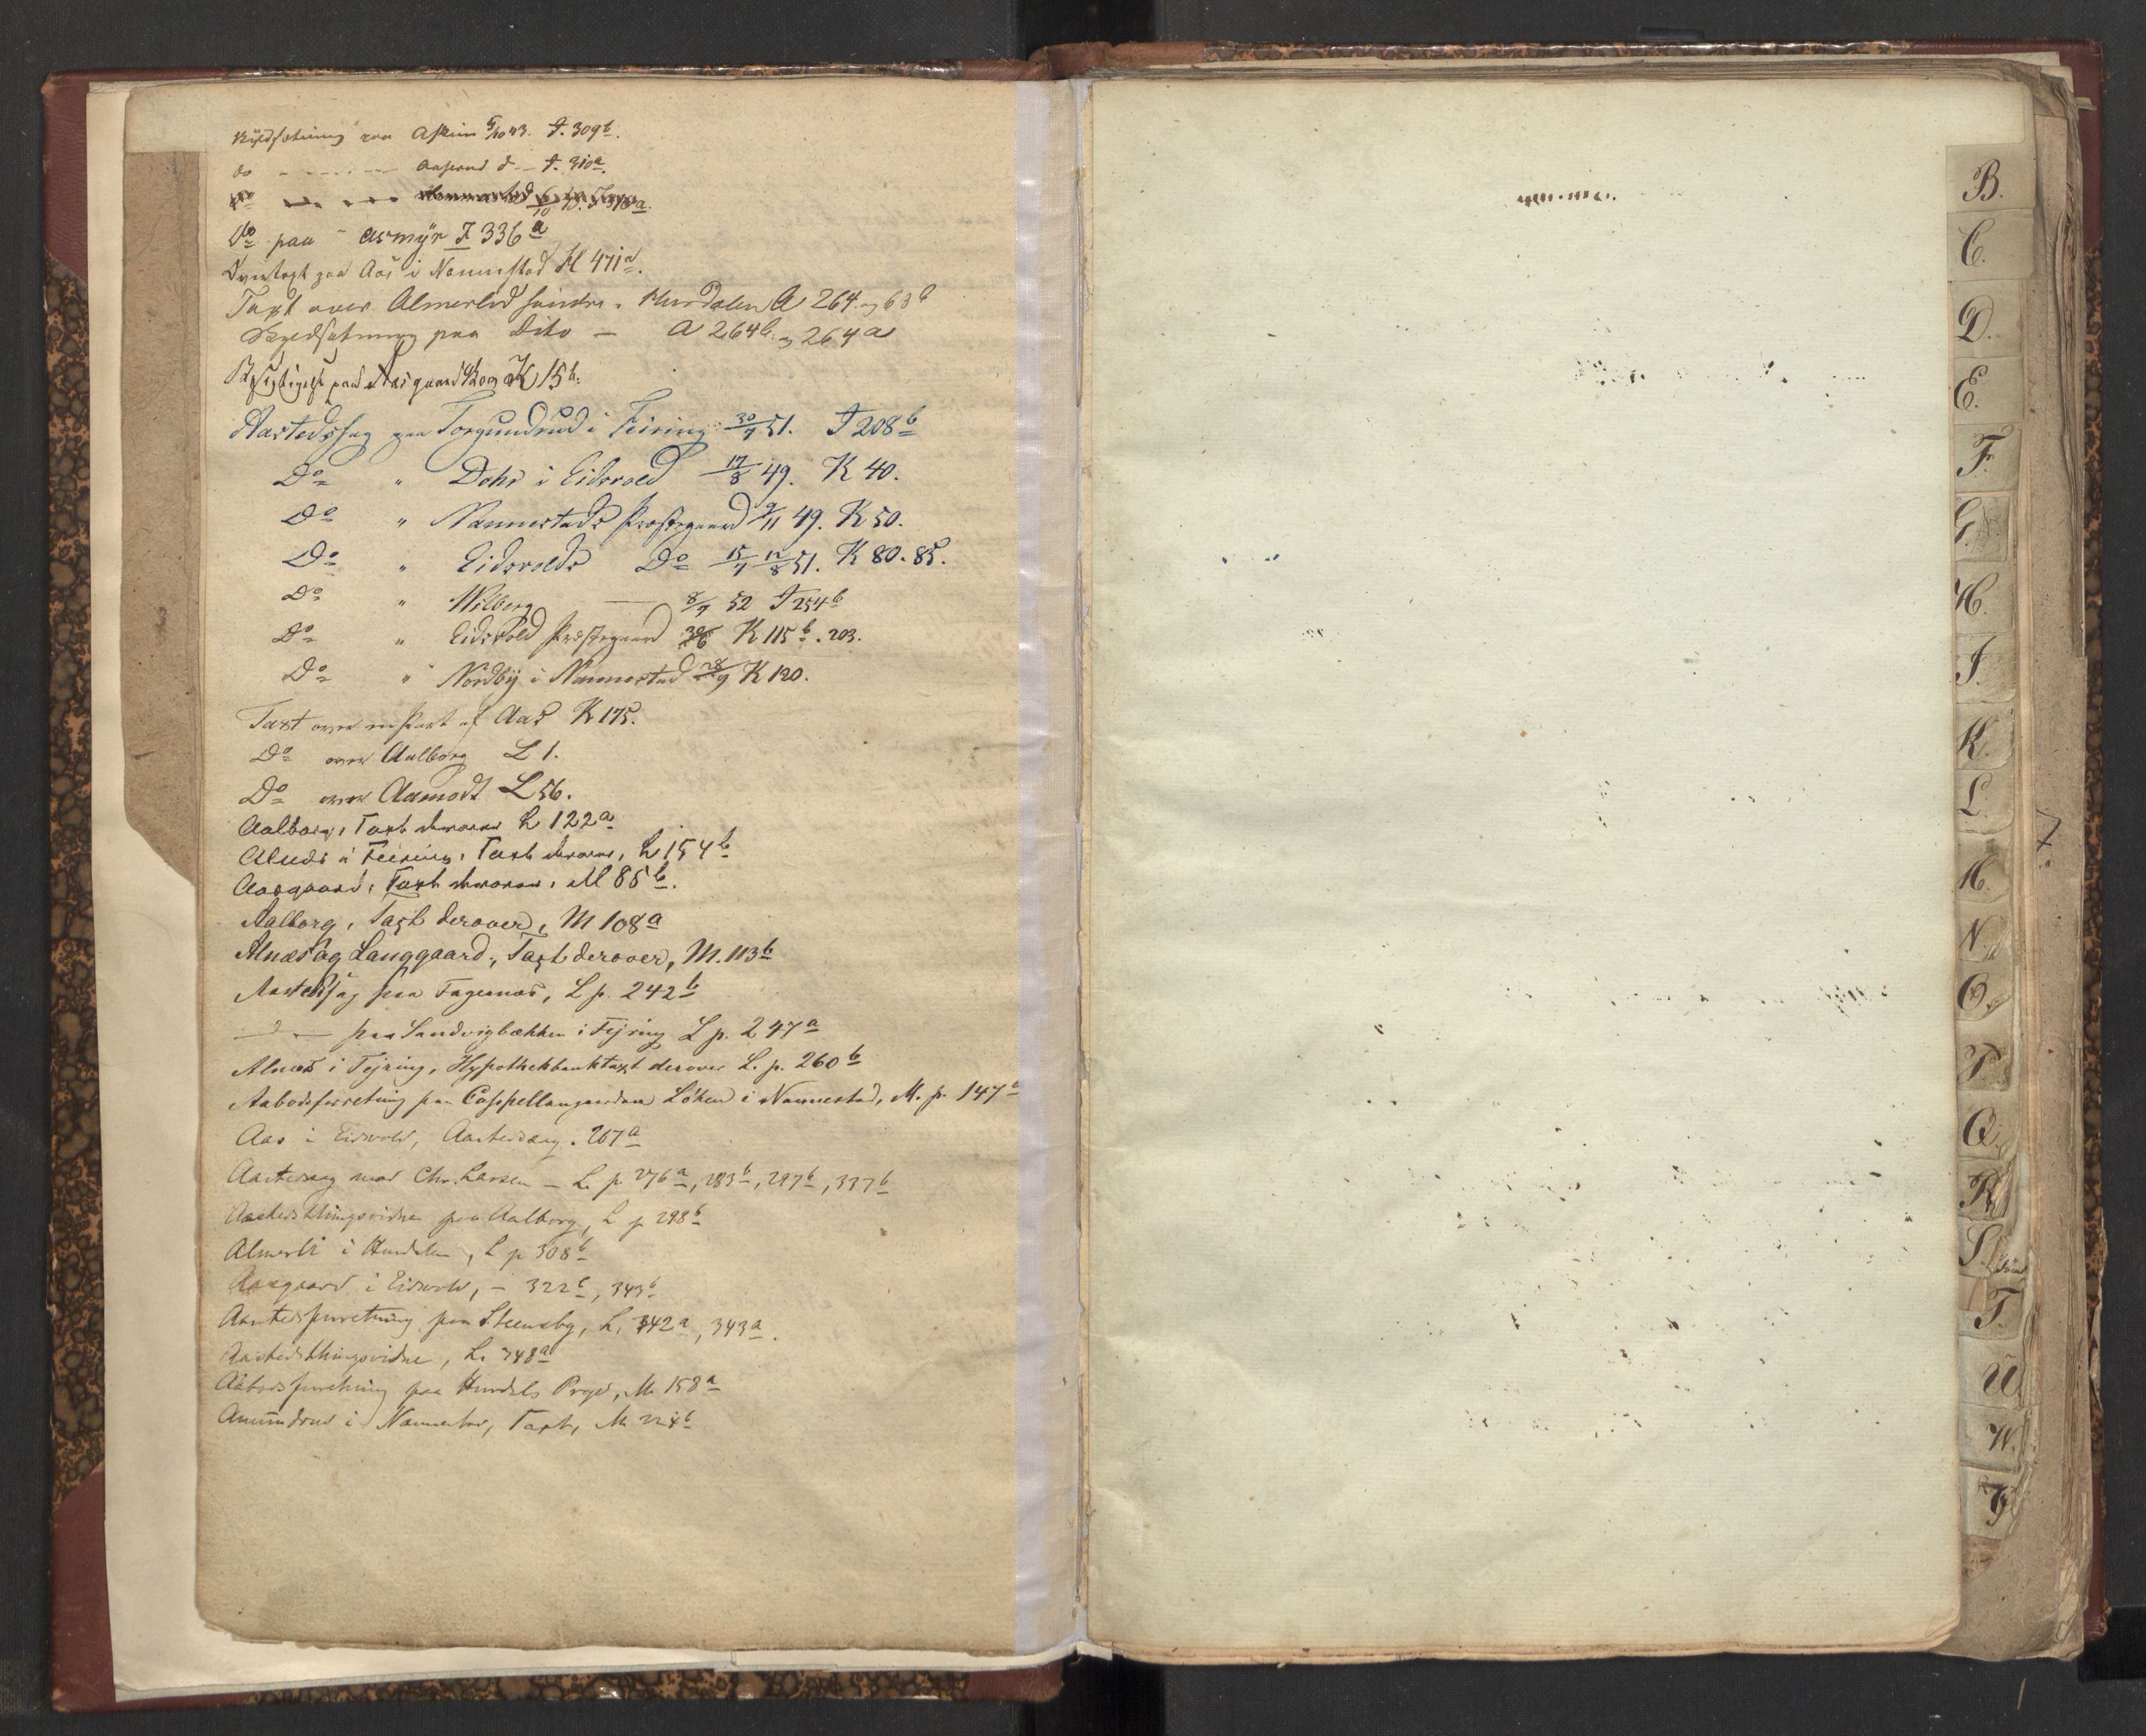 Skyldsætning paa Askim 5/10 43. I. 309b.
do - - - - Aaserud d - I. 310a.
Do paa - Asmyr I 336a
Overtaxt paa Aas i Nannestad H 471a.
Taxt over Almerlid søndre i Hurdalen A 264 og 63b
Skyldsætning paa Dito - A 264b og 264a
Besigtigelse paa Aasgaard Skog K 15b.
Aastedssag paa Torgundrud i Feiring 30/7 51. I 208b
Do " Dohr i Eidsvold 17/8 49. K 40.
Do " Nannestads Præstegaard 9/11 49. K 50.
Do " Eidsvolds Do 15/7 12/8 51. K 80. 85.
Do " Wilberg — 8/7 52 I 254b
Do " Eidsvold Præstegaard K 115b. 203.
Do " Nordby i Nannestad 28/9 K 120.
Taxt over en Part af Aas K 175.
Do over Aalborg L 1.
Do over Aamodt L 56.
Aalborg, Taxt derover L 122a
Alnæs i Feiring, Taxt derover, L 154b
Aasgaard, Taxt derover, M 85b.
Aalborg, Taxt derover, M 108a
Alnæs og Langgaard, Taxt derover, M. 113b
Aastedssag paa Fagernæs, L p. 242b
— d — paa Sandvigbækken i Fejring L p. 247a
Alnæs i Fejring, Hypothekbanktaxt derover L. p. 260b
Aabodsforretning paa Cappellangaarden Løken i Nannestad, M. p. 147a
Aas i Eidsvold, Aastedssag. 267a
Aastedssag mod Chr. Larsen - L. p. 276a, 283b, 297b, 337b
Aastedsthingsvidne paa Aalborg, L p 298b
Almerli i Hurdalen, L p 308b
Aasgaard i Eidsvold, - 322b, 343b
Aastedsforretning paa Steensby, L. 342a, 343a.
Aastedsthingsvidne, L. 348a
Aabodsforretning paa Hurdals Prgd, M 158a
Amundrud i Nannestad, Taxt, M 224b
B.
C.
D.
E.
F.
G.
H.
I.
K.
L.
M.
N.
O.
P.
Q.
R.
S.
T.
U.
W.